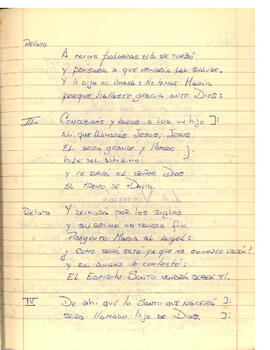 Relato
A estas palabras ella se turbó
y pensaba a que vendría tal saludo.
y le dijo el Ángel: No temas María
porque hallaste gracia ante Dios:
III- Concebirás y darás a luz un hijo ]:
al que llamarás Jesús, Jesús
El será grande y llamado ]:
hijo del altísimo
y le dará el Señor Dios
el trono de David.
Relato Y reinará por los siglos
y su reino no tendrá fin.
Preguntó María al Ángel:
¿Como será esto ya que no conozco varón?
y el Ángel le contestó:
El Espíritu Santo vendrá sobre tí.
IV De ahí que lo Santo que nacerá ]:
será llamado hijo de Dios. ]: